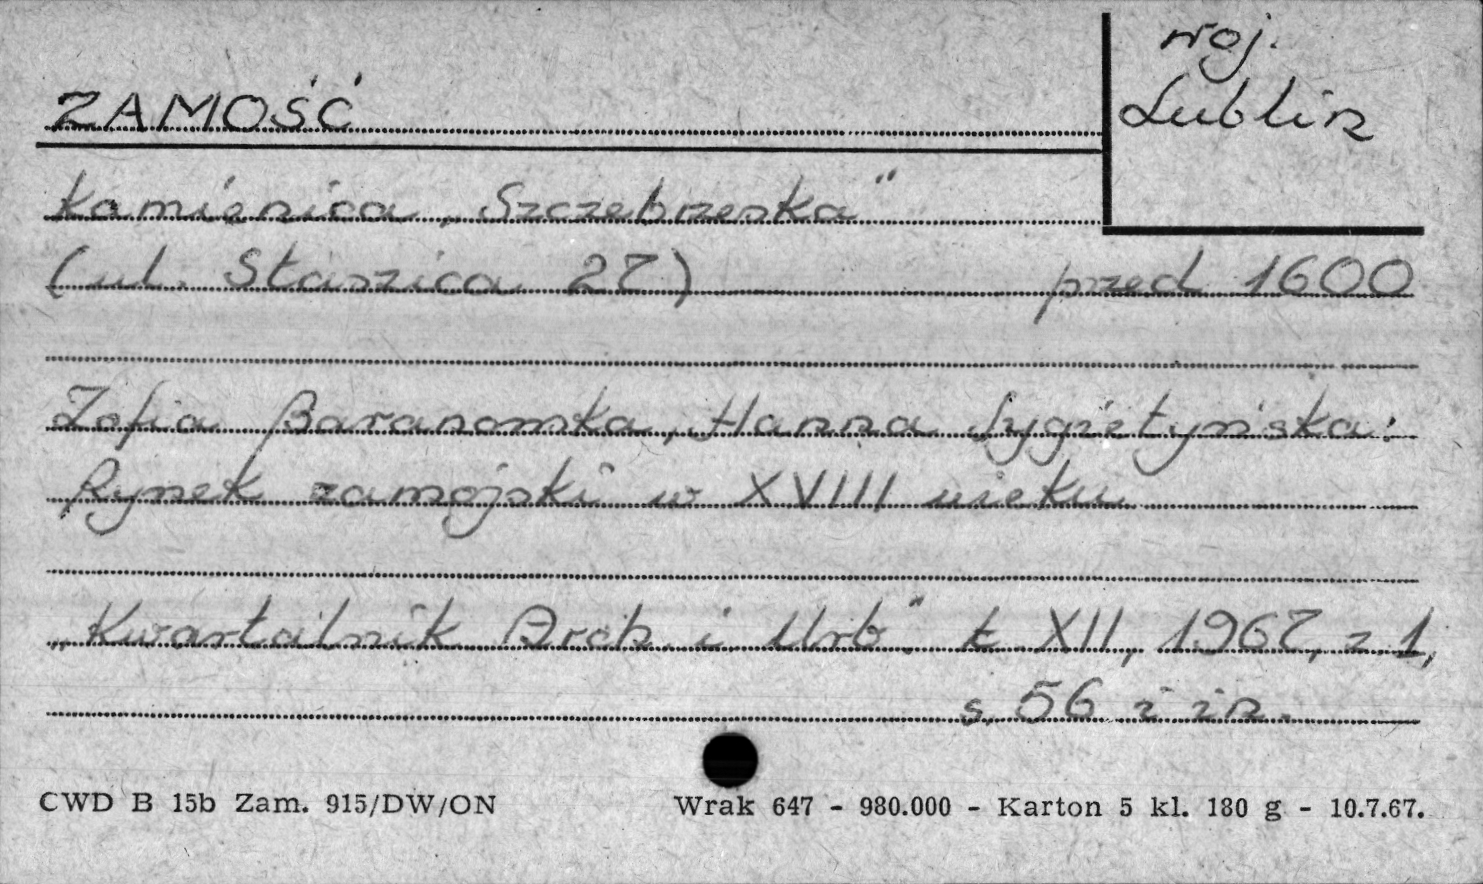 woj.
Lublin
ZAMOŚĆ
Kamienica „Szczebrzeska"
(ul. Staszica 27) przed 1600
Zofia Baranowska, Hanna Sygietyńska:
Rynek zamojski w XVIII wieku
„Kwartalnik Arch. i Urb." t. XII, 1967, z 1,
s. 56 i in.
CWD B 15b Zam. 915/DW/ON Wrak 647 - 980.000 - Karton 5 kl. 180 g - 10.7.67.